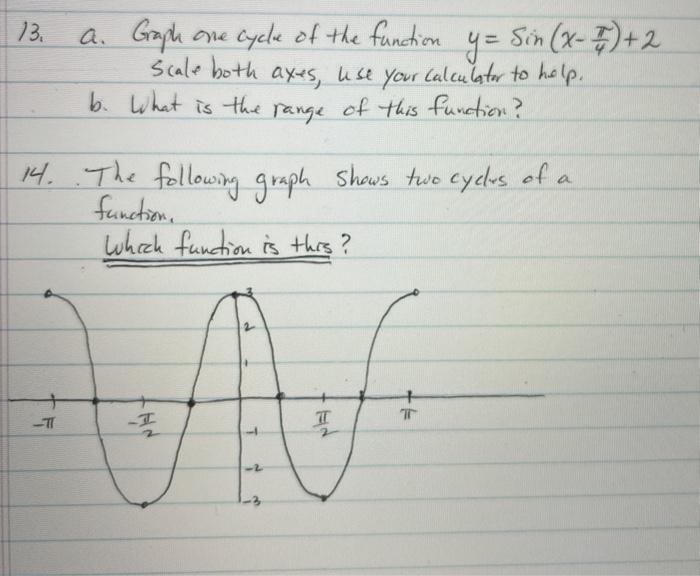 13. a. Graph one cycle of the function y = Sin(x-π/4)+2
Scale both axes, use your calculator to help.
b. What is the range of this function?
14. The following graph shows two cycles of a
function.
Which function is this?
3
2
1
-π -π/2 π/2 π
-1
-2
-3